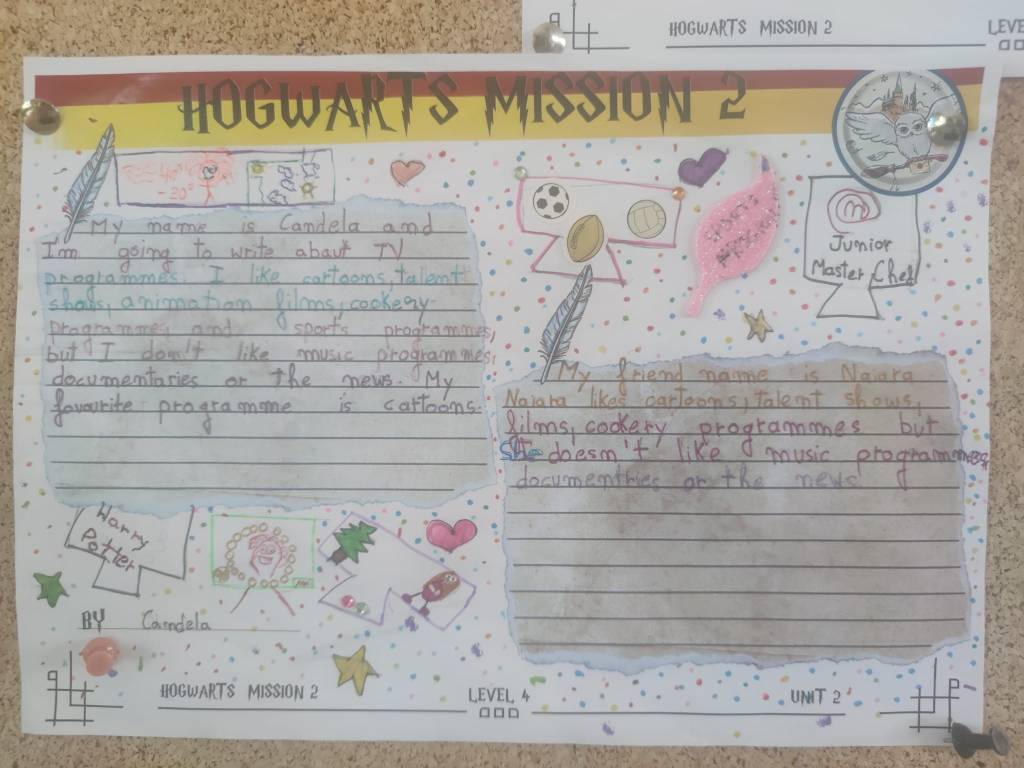 HOGWARTS MISSION 2
LEVE
HOGWARTS MISSION 2
-20°
My name is Candela and
I'm going to write about TV
programmes. I like cartoons, talent
shows, animation films, cookery
programmes and sports programmes,
but I don't like music programmes,
documentaries or the news. My
favourite programme is cartoons.
Junior
Master Chef
My friend name is Naiara
Naiara likes cartoons, talent shows,
films, cookery programmes but
She doesn't like music programmes,
documentries or the news
Harry
Potter
BY Candela
HOGWARTS MISSION 2
LEVEL 4
UNIT 2